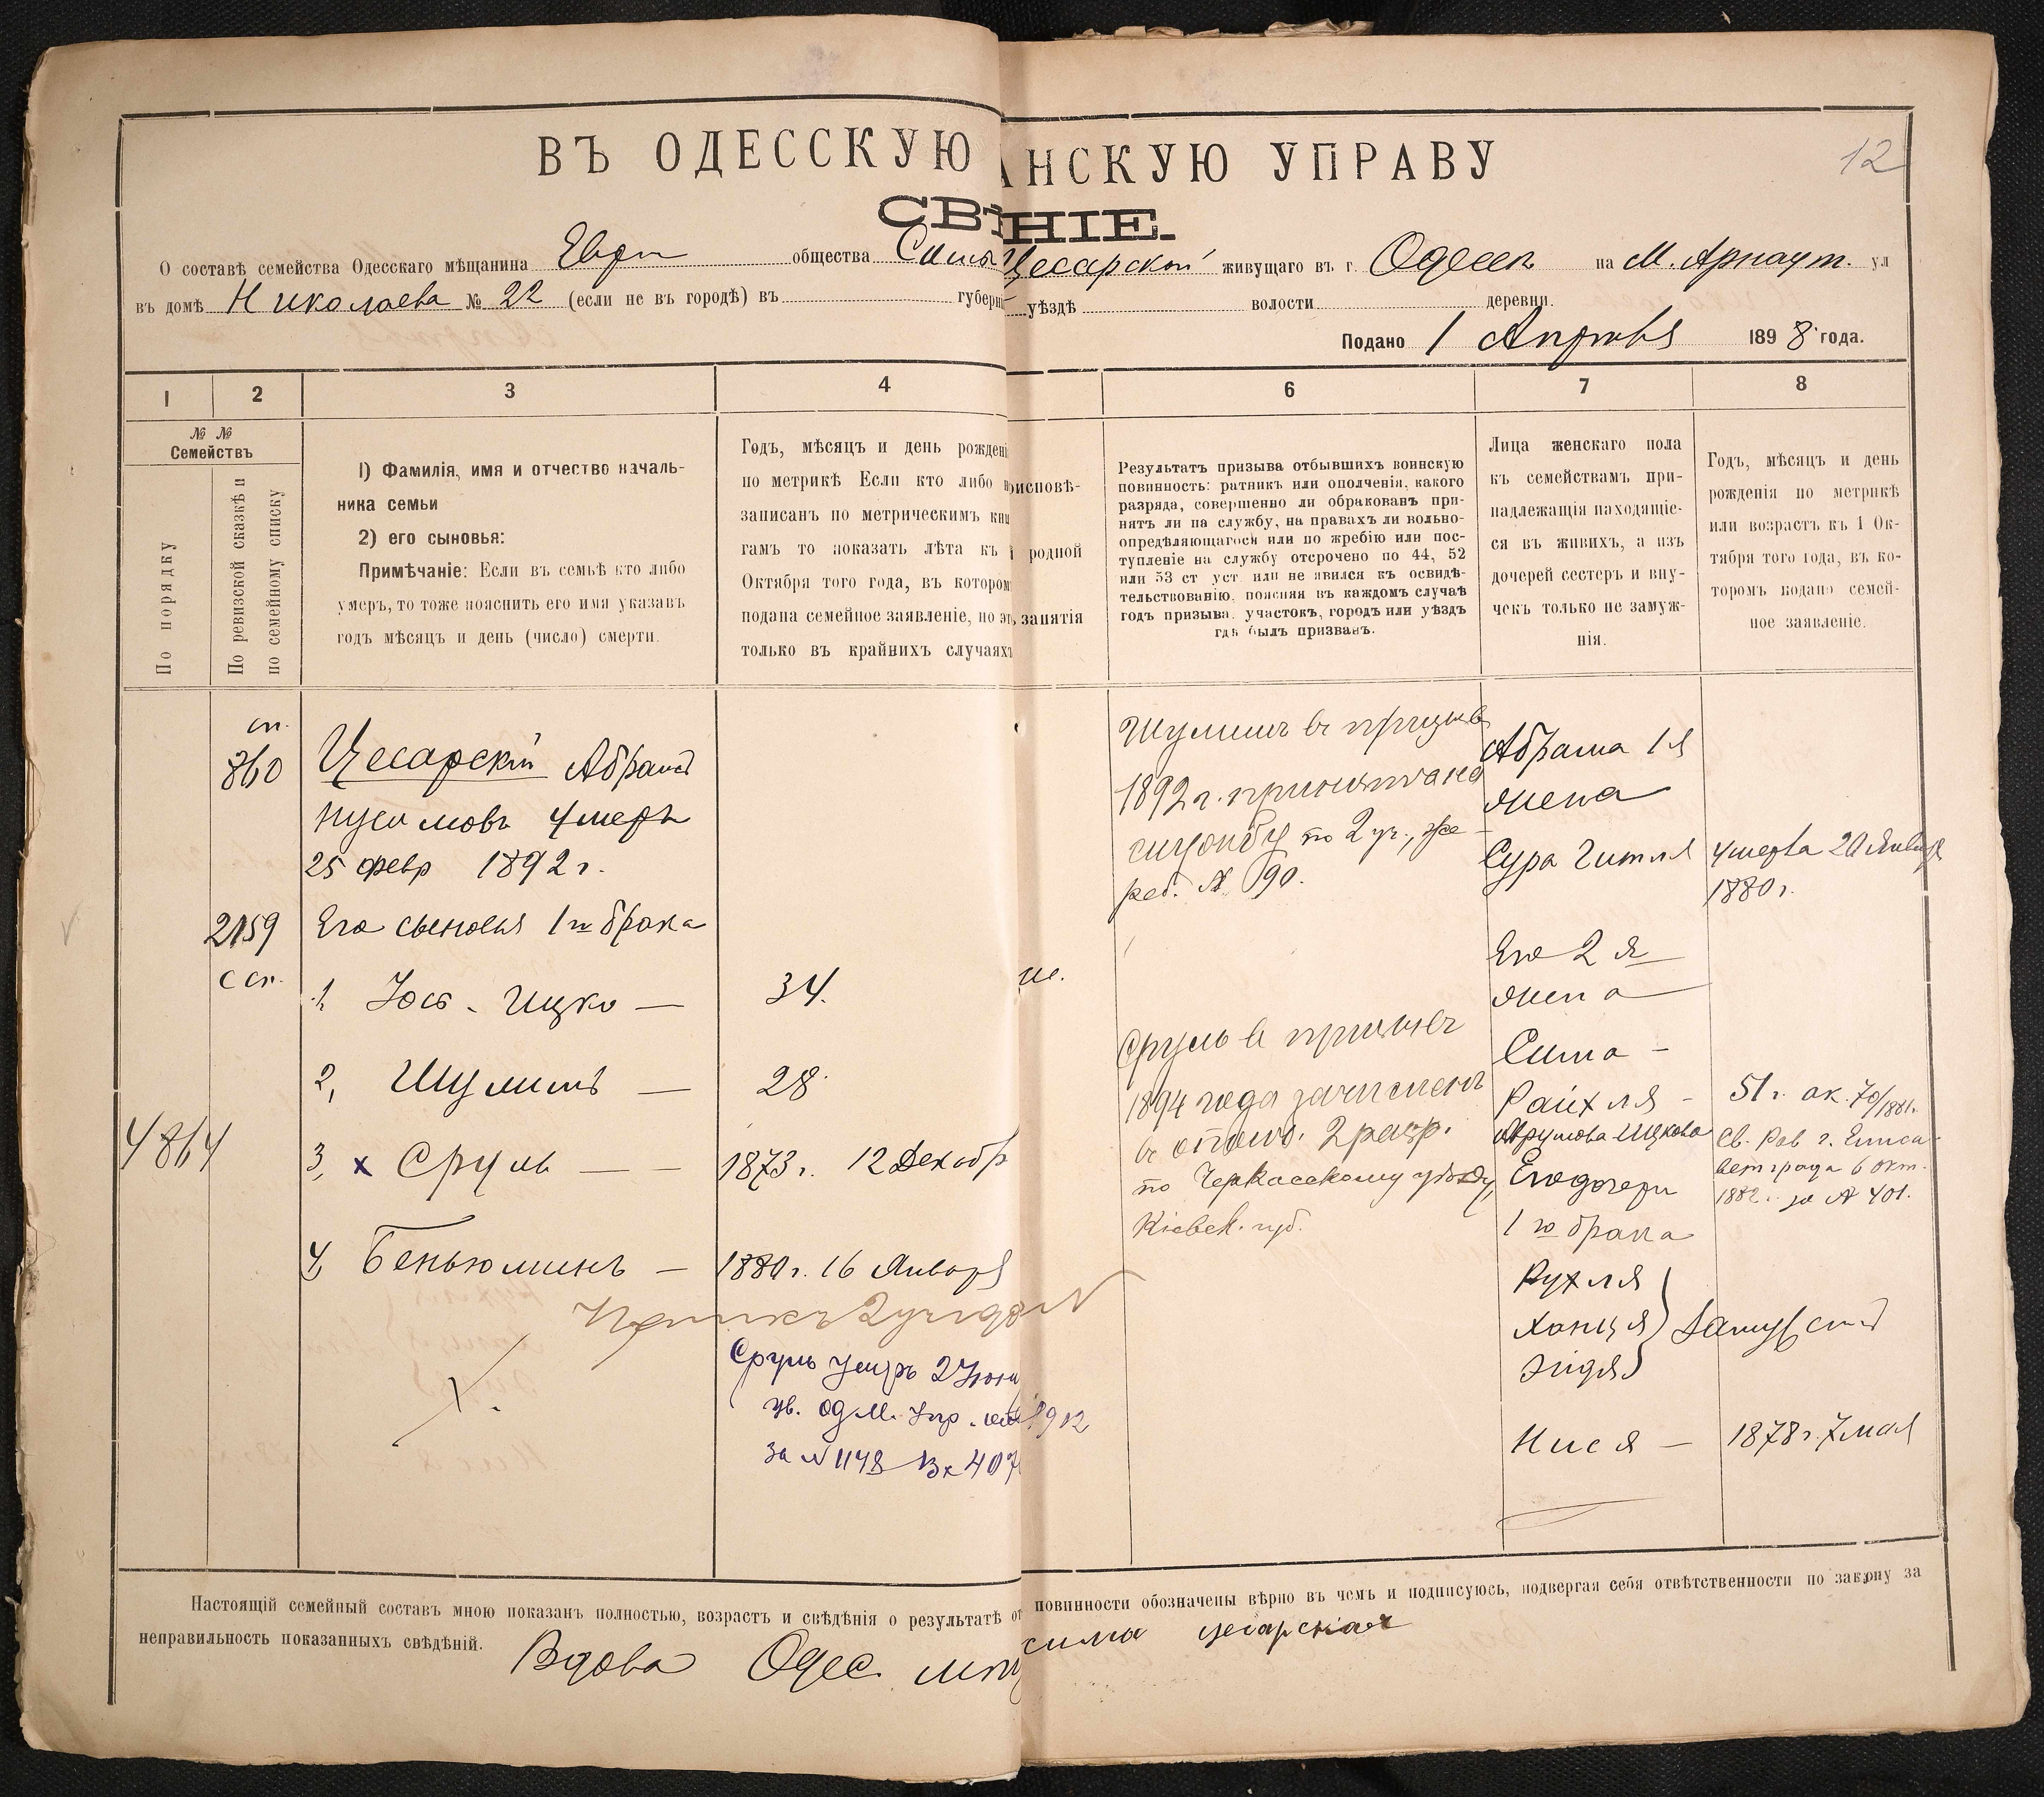 12
ВЪ ОДЕССКУЮ АНСКУЮ УПРАВУ
СВѢНІЕ.
О составѣ семейства Одесскаго мѣщанина Евр. общества Симы Цесарской живущаго въ г. Одессѣ на М. Арнаут. ул
въ домѣ Николаева № 22 (если не въ городѣ) въ губерні уѣздѣ волости деревни.
Подано 1 Апрѣля 1898 года.
1 2 3 4 6 7 8
№ №
Семействъ
По порядку
По ревизской сказкѣ и
по семейному списку
1) Фамилія, имя и отчество началь-
ника семьи
2) его сыновья:
Примѣчаніе: Если въ семьѣ кто либо
умеръ, то тоже пояснить его имя указавъ
годъ мѣсяцъ и день (число) смерти.
Годъ, мѣсяцъ и день рожденi
по метрикѣ Если кто либо н
записанъ по метрическимъ кни
гамъ то показать лѣта къ 1
Октября того года, въ котором
подана семейное заявленіе, но эт
только въ крайнихъ случаяхъ
рисповѣ-
родной
занятія
Результатъ призыва отбывшихъ воинскую
повинность: ратникъ или ополченія, какого
разряда, совершенно ли обракованъ при-
нятъ ли на службу, на правахъ ли вольно-
опредѣляющагося или по жребію или пос-
тупленіе на службу отсрочено по 44, 52
или 53 ст уст или не явился къ освидѣ-
тельствованію, поясняя въ каждомъ случаѣ
годъ призыва, участокъ, городъ или уѣздъ
гдѣ былъ призванъ.
Лица женскаго пола
къ семействамъ при-
надлежащія находящіе-
ся въ живихъ, а изъ
дочерей сестеръ и вну-
чекъ только не замуж-
нія.
Годъ, мѣсяцъ и день
рожденія по метрикѣ
или возрастъ къ 1 Ок-
тября того года, въ ко-
торомъ подано семей-
ное заявленіе.
сп.
860
Цесарскій Абрамъ
Нусимовъ умеръ
25 февр 1892 г.
2159
с сп.
Его сыновья 1го брака
1, Юсь-Ицко — 34.
2, Шулимъ — 28
4864
3, х Сруль — — 1873 г. 12 Декабр
4, Беньюминъ — 1880 г. 16 Января
Сруль умеръ 2 Іюня
ув. Од. М. Упр. 1912
за № 1148 Вх 407
Шулимъ въ призывѣ
1892 г. принятъ на
службу по 2 уч., же-
реб. № 190.
Сруль въ призывѣ
1894 года зачисленъ
въ ополч. 2 разр.
по Черкасскому уѣзду,
Кіевск. губ.
Абрама 1я
жена
Сура Гитля умерла 20 Января
1880 г.
Его 2я
жена
Сима -
Райхля -
Абрумова-Ицкова
51 г. ок. 70/1881 г.
Св. Рав г. Елиса-
ветграда 6 окт.
1882 г. за № 401.
Его дочери
1го брака
Рухля
Ханця
Эйдя
Замужем
Нися — 1878 г. 7 мая
Настоящій семейный составъ мною показанъ полностью, возрастъ и свѣдѣнія о результатѣ от повинности обозначены вѣрно въ чемъ и подписуюсь, подвергая себя отвѣтственности по закону за
неправильность показанныхъ свѣдѣній.
Вдова Одес. мѣщ сима цесарская